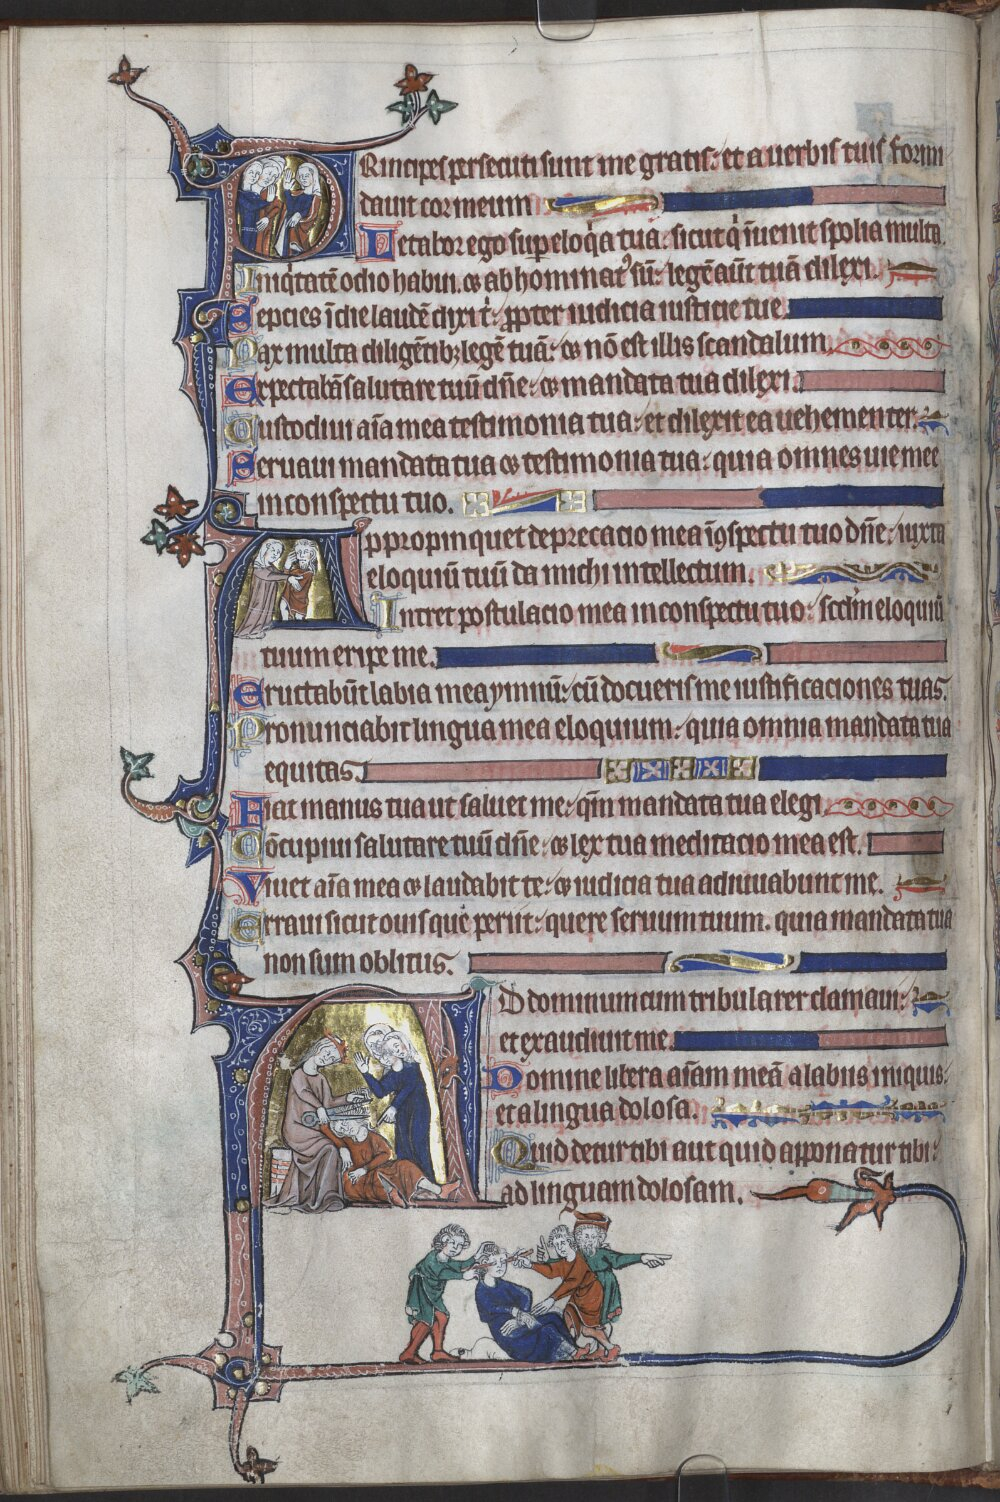 PRincipes persecuti sunt me gratis: et a uerbis tuis formi
dauit cor meum
Letabor ego sup eloqa tua: sicut q inuenit spolia multa.
Iniqtatē odio habui. & abhominat sū: legē aūt tuā dilexi.
Sepcies ī die laudē dixi t: ppter iudicia iusticie tue.
Pax multa diligētibꝫ legē tuā: & nō est illis scandalum.
Expectabā salutare tuū dn̄e: & mandata tua dilexi.
Custodiui aīa mea testimonia tua: et dilexit ea uehementer.
Seruaui mandata tua & testimonia tua: quia omnes uie mee
in conspectu tuo.
Appropinquet deprecacio mea ī ꝯspectu tuo dn̄e: iuxta
eloquiū tuū da michi intellectum.
Intret postulacio mea in conspectu tuo: scdm eloquiū
tuum eripe me.
Eructabūt labia mea ymnū: cū docueris me iustificaciones tuas.
Pronunciabit lingua mea eloquium: quia omnia mandata tua
equitas.
Fiat manus tua ut saluet me: qm̄ mandata tua elegi
Cōcupiui salutare tuū dn̄e: & lex tua meditacio mea est.
Viuet aīa mea & laudabit te: & iudicia tua adiuuabunt me.
Erraui sicut ouis que periit: quere seruum tuum. quia mandata tua
non sum oblitus.
AD dominum cum tribularer clamaui:
et exaudiuit me.
Domine libera aīam meā a labiis iniquis:
et a lingua dolosa.
Quid detur tibi aut quid apponatur tibi:
ad linguam dolosam.